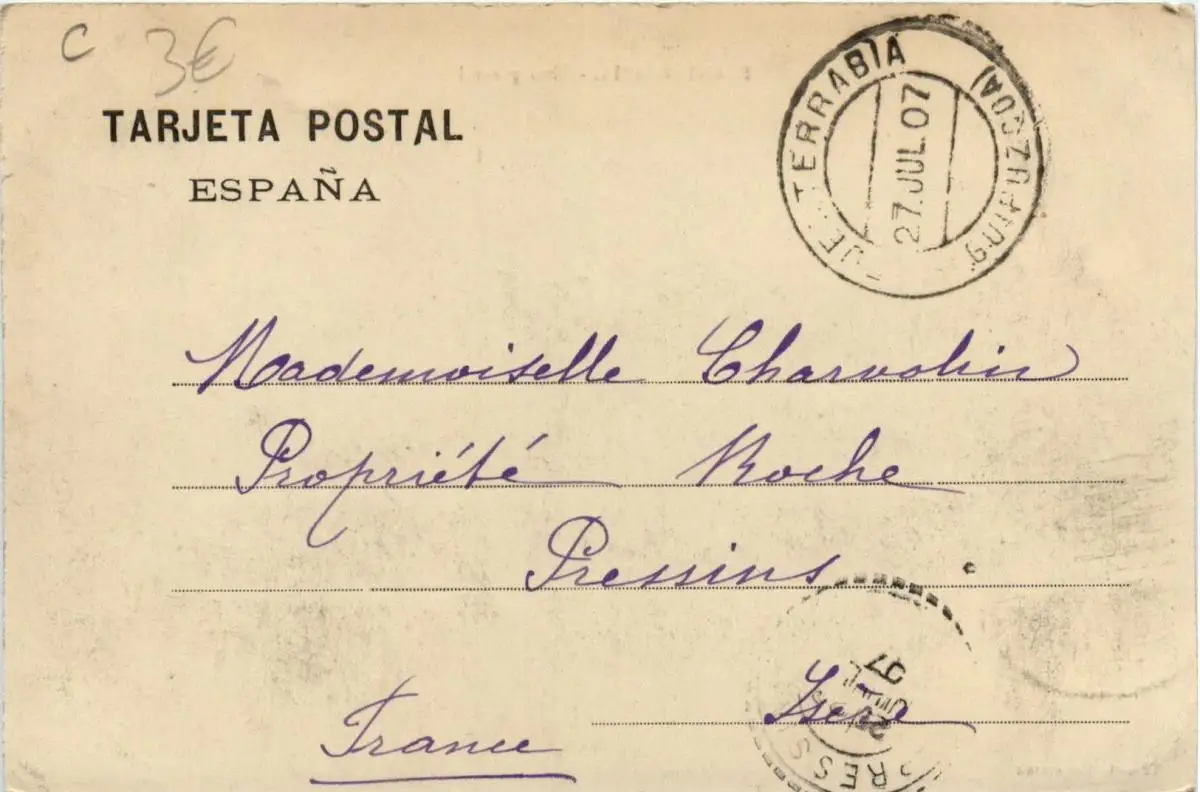 C 3€
TARJETA POSTAL
ESPAÑA
TERRABIA
(GUIPUZCOA)
27.JUL.07
Mademoiselle Charvolin
Propriété Roche
Pressins
Isère
France
07
PRESS